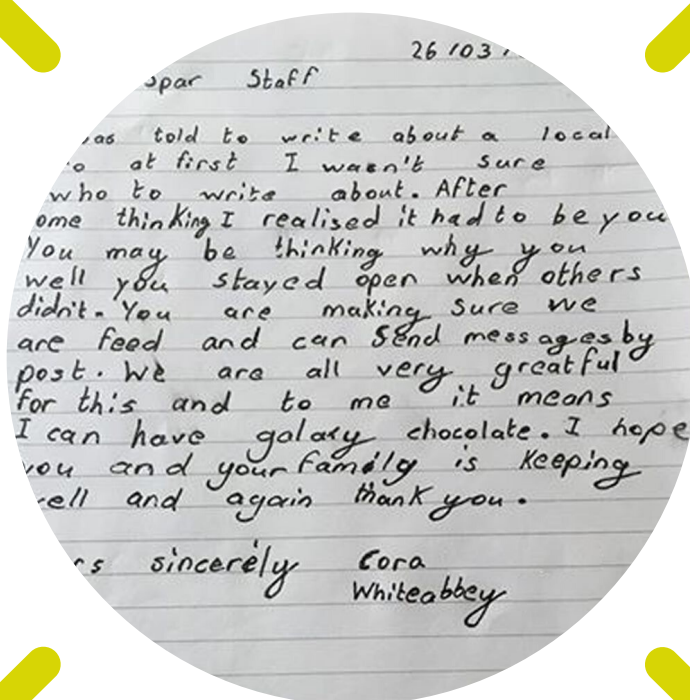 26/03
spar Staff
as told to write about a local
o at first I wasn't sure
who to write about. After
ome thinking I realised it had to be you
You may be thinking why you
well you stayed open when others
didn't. You are making sure we
are feed and can send messages by
post. We are all very greatful
for this and to me it means
I can have galaxy chocolate. I hope
you and your family is keeping
ell and again thank you.
rs sincerely Cora
Whiteabbey